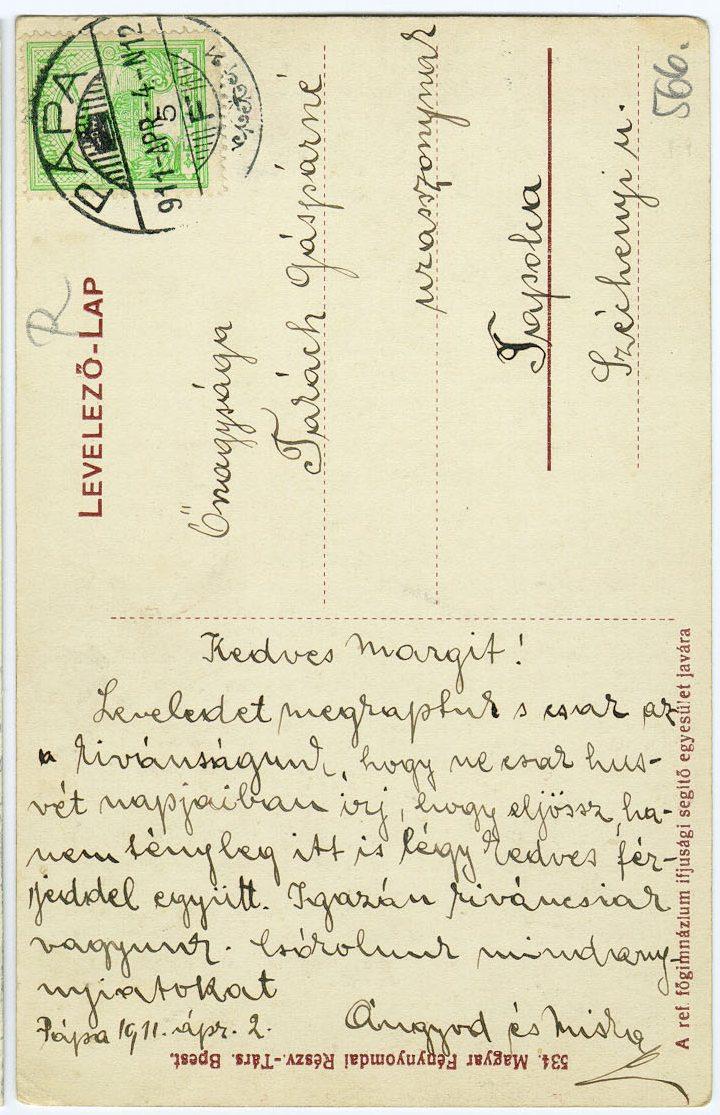 PÁPA
911-APR.-4.-N12
5
F
R
566.
LEVELEZŐ-LAP
Őnagysága
Tarách Gáspárné
urasszonynak
Tapolca
Széchenyi u.
Kedves Margit!
Leveledet megkaptuk s csak az
a kivánságunk, hogy ne csak hus-
vét napjaiban irj, hogy eljössz, ha-
nem tényleg itt is légy kedves fér-
jeddel együtt. Igazán kiváncsiak
vagyunk. Csókolunk mindany-
nyiatokat
Pápa 1911. ápr. 2.
Ángyod és Miska
A ref. főgimnázium ifjusági segitő egyesület javára
534. Magyar Fénynyomdai Részv.-Társ. Bpest.